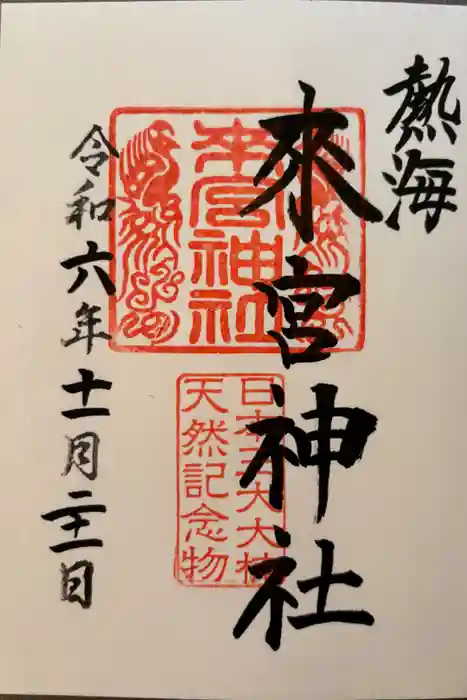 熱海
來宮神社
来宮神社
日本三大大楠
天然記念物
令和六年十一月二十一日